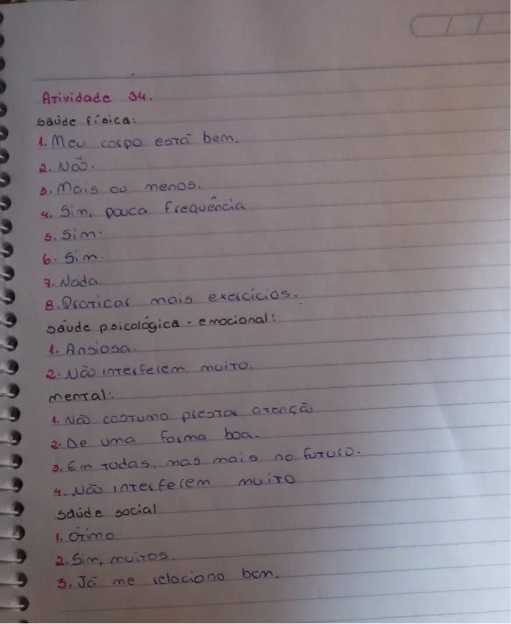 Atividade 34.
saúde física:
1. Meu corpo está bem.
2. Não.
3. Mais ou menos.
4. Sim, pouca frequência.
5. Sim.
6. Sim.
7. Nada
8. Praticar mais exercícios.
saúde psicológica - emocional:
1. Ansiosa.
2. Não interferem muito.
mental:
1. Não costumo prestar atenção
2. De uma forma boa.
3. Em todas, mas mais no futuro.
4. Não interferem muito
saúde social
1. ótimo
2. Sim, muitos.
3. Já me relaciono bem.